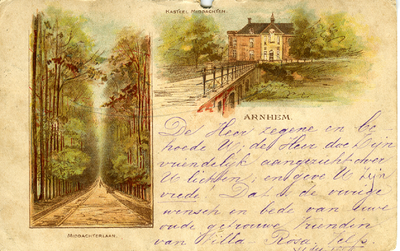 KASTEEL MUSSACHTEN.
ARNHEM.
De Heer zegene en be
hoede U; de Heer doe Zijn
vriendelijk aangezicht over
U lichten, en geve U Zijn
vrede. Dat is de
wensch en bede van uwe
oude getrouwe vriendin
van Villa Rosa